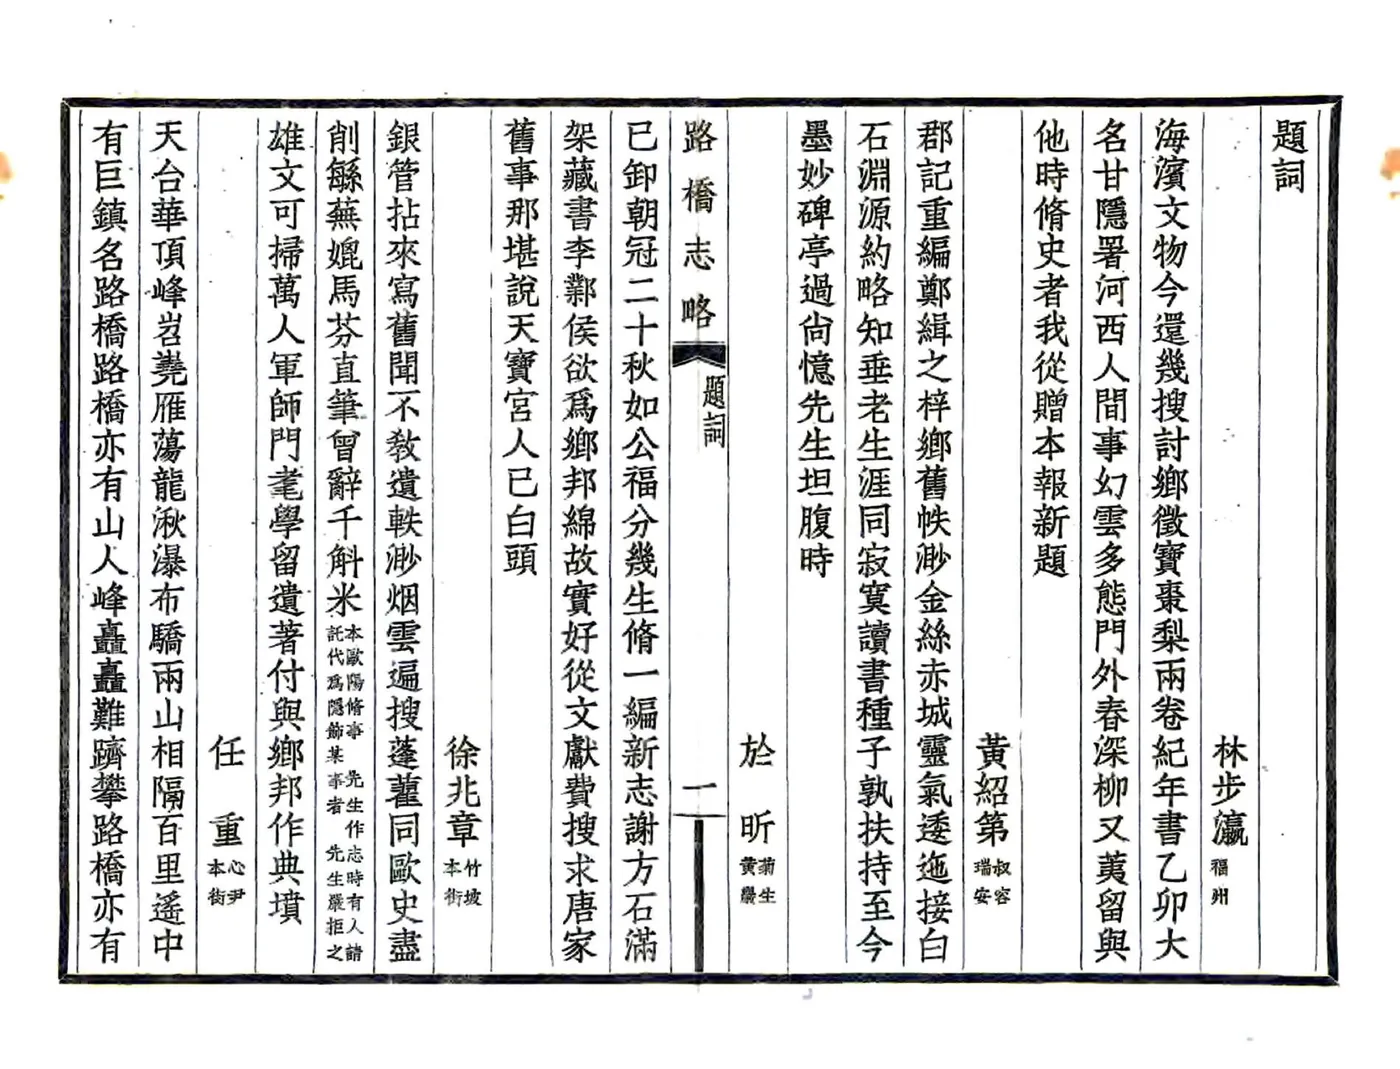 題詞
林步瀛 福州
海濱文物今還幾搜討鄉徵寶棗梨兩卷紀年書乙卯大
名甘隱署河西人間事幻雲多態門外春深柳又荑留與
他時脩史者我從贈本報新題
黃紹第 叔容 瑞安
郡記重編鄭緝之梓鄉舊帙渺金絲赤城靈氣逶迤接白
石淵源約略知垂老生涯同寂寞讀書種子孰扶持至今
墨妙碑亭過尙憶先生坦腹時
於昕 菊生 黃巖
路橋志略 題詞 一
已卸朝冠二十秋如公福分幾生脩一編新志謝方石滿
架藏書李鄴侯欲爲鄉邦綿故實好從文獻費搜求唐家
舊事那堪說天寶宮人已白頭
徐兆章 竹坡 本街
銀管拈來寫舊聞不敎遺軼渺烟雲遍搜蓬藋同歐史盡
削緐蕪媲馬芬直筆曾辭千斛米 本歐陽脩事 先生作志時有人請 託代爲隱飾某事者 先生嚴拒之
雄文可掃萬人軍師門耄學留遺著付與鄉邦作典墳
任重 心尹 本街
天台華頂峰岧嶤雁蕩龍湫瀑布驕兩山相隔百里遙中
有巨鎮名路橋路橋亦有山人峰矗矗難躋攀路橋亦有